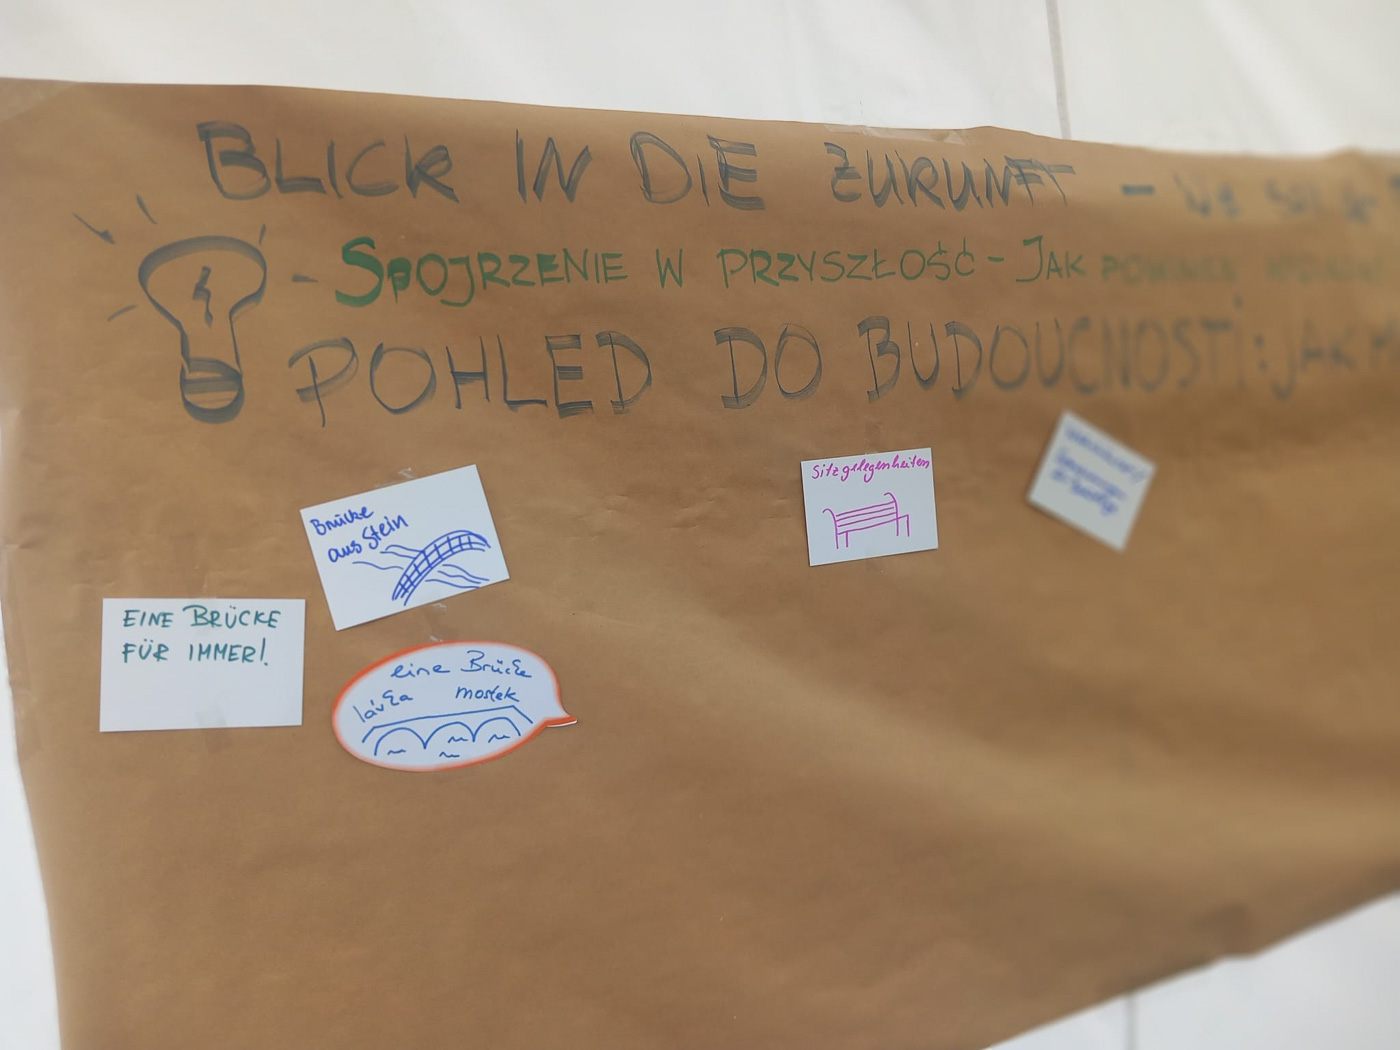 BLICK IN DIE ZUKUNFT -
- SPOJRZENIE W PRZYSZŁOŚĆ - JAK
POHLED DO BUDOUCNOSTI: JAK
Brücke
aus Stein
Sitzgelegenheiten
EINE BRÜCKE
FÜR IMMER!
eine Brücke
lávka mostek